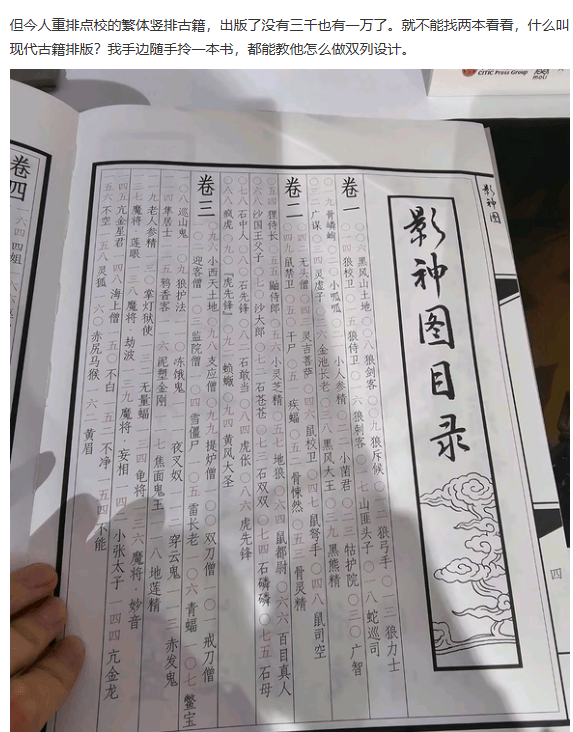 但今人重排点校的繁体竖排古籍，出版了没有三千也有一万了。就不能找两本看看，什么叫
现代古籍排版？我手边随手拎一本书，都能教他怎么做双列设计。
CITIC Press Group
影神图
影神图目录
卷一
〇〇六 黑风山土地 〇〇八 狼剑客 〇〇九 狼斥候 〇一二 狼弓手 〇一三 狼力士
〇一四 狼校卫 〇一五 狼侍卫 〇一六 狼刺客 〇一七 山匪头子 〇一八 蛇巡司
〇一九 骨嶙峋 〇二〇 小呱呱 〇二一 小人参精 〇二二 小菌君 〇二三 牯护院 〇三〇 广智
〇三二 广谋 〇三四 灵虚子 〇三六 金池长老 〇三八 黑风大王 〇三九 黑熊精
卷二
无头僧 〇四三 灵吉菩萨 〇四六 鼠校卫 〇四七 鼠弩手 〇四八 鼠司空
〇四九 鼠禁卫 干尸 疾蝠 骨悚然 〇五三 骨灵精
〇五四 狸侍长 〇五五 鼬侍郎 〇五六 小灵芝精 〇五七 地狼 〇六四 鼠都尉 〇六六 百目真人
〇六八 沙国王父子 〇七〇 沙大郎 〇七二 石苍苍 〇七三 石双双 〇七四 石磷磷 〇七五 石母
〇七八 石中人 〇八〇 石先锋 〇八二 石敢当 〇八四 虎伥 〇八六 虎先锋
〇八八 疯虎 〇九〇 『虎先锋』 蝜蝂 〇九四 黄风大圣
卷三
〇九六 小西天土地 〇九八 支应僧 〇九九 提炉僧 一〇〇 双刀僧 一〇一 戒刀僧
一〇二 迎客僧 一〇三 监院僧 一〇四 雪僵尸 一〇五 雷长老 一〇六 青蝠 一〇七 鳖宝
一〇八 巡山鬼 一〇九 狼护法 一一〇 冻饿鬼 一一一 夜叉奴 一一二 穿云鬼 一一三 赤发鬼
一一四 隼居士 一一五 鸦香客 一一六 泥塑金刚 一一七 焦面鬼王 一一八 地莲精
一一九 老人参精 掌灯狱使 无量蝠 一三四 龟将 一三六 魔将·妙音
一三七 魔将·莲眼 一三八 魔将·劫波 一三九 魔将·妄相 一四二 小张太子 一四四 亢金龙
一四五 亢金星君 一四八 海上僧 一五〇 不白 一五二 不净 一五四 不能
一五六 不空 一五八 灵狐 一六〇 赤尻马猴 一六二 黄眉
卷四
一六四 四姐
四